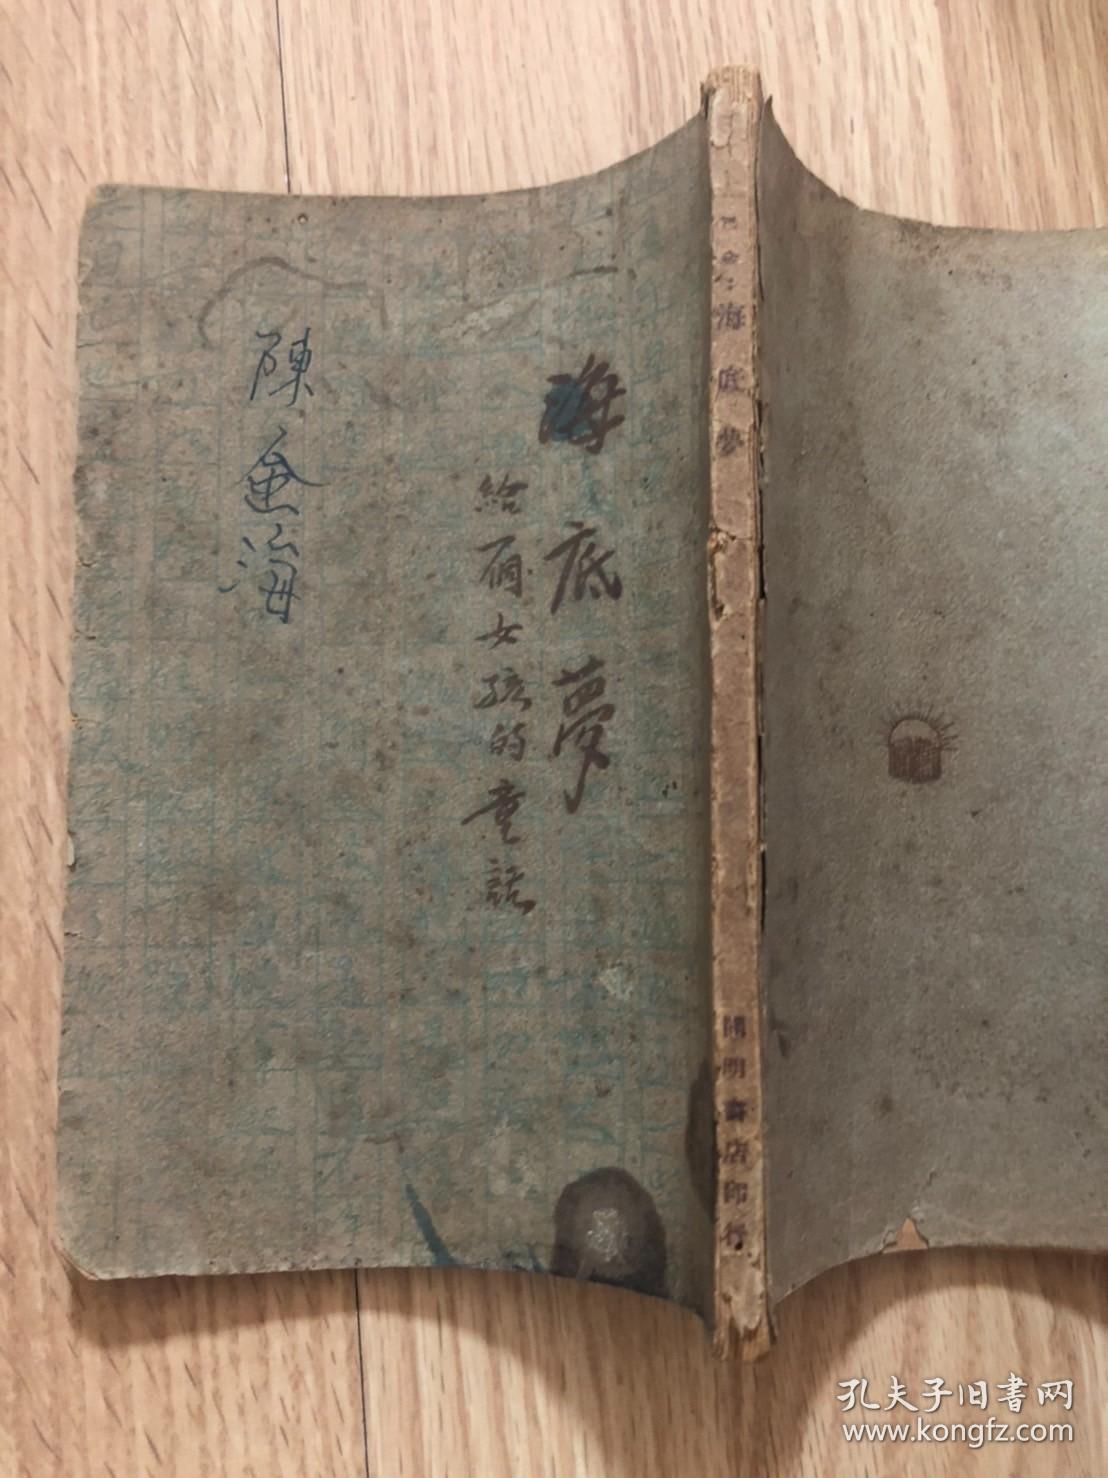 海底夢
給一個女孩的童話
陳金海
巴金:海底夢
開明書店印行
孔夫子旧书网
www.kongfz.com